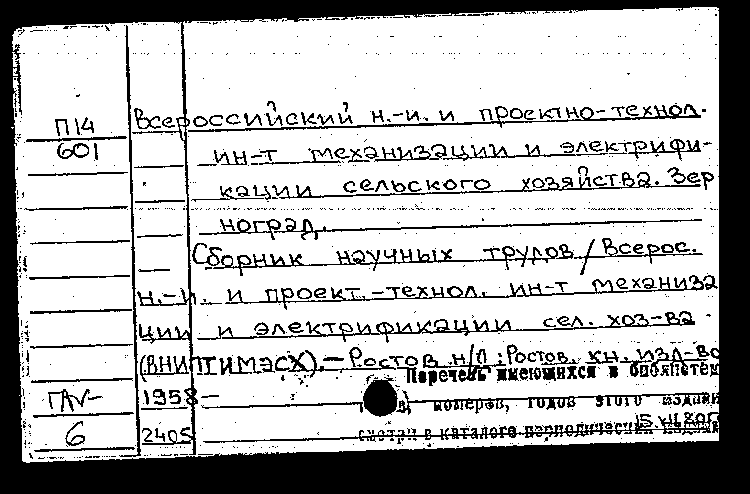 П14 Всероссийский н.-и. и проектно-технол.
601 ин-т механизации и электрифи-
кации сельского хозяйства. Зер
ноград.
Сборник научных трудов / Всерос.
н.-и. и проект.-технол. ин-т механиза
ции и электрификации сел. хоз-ва
(ВНИПТИМЭСХ).- Ростов н/Д : Ростов. кн. изд-во
Перечень имеющихся в библиотек
1958-
номеров, годов этого издани
6 2405
смотри в каталоге периодических издани